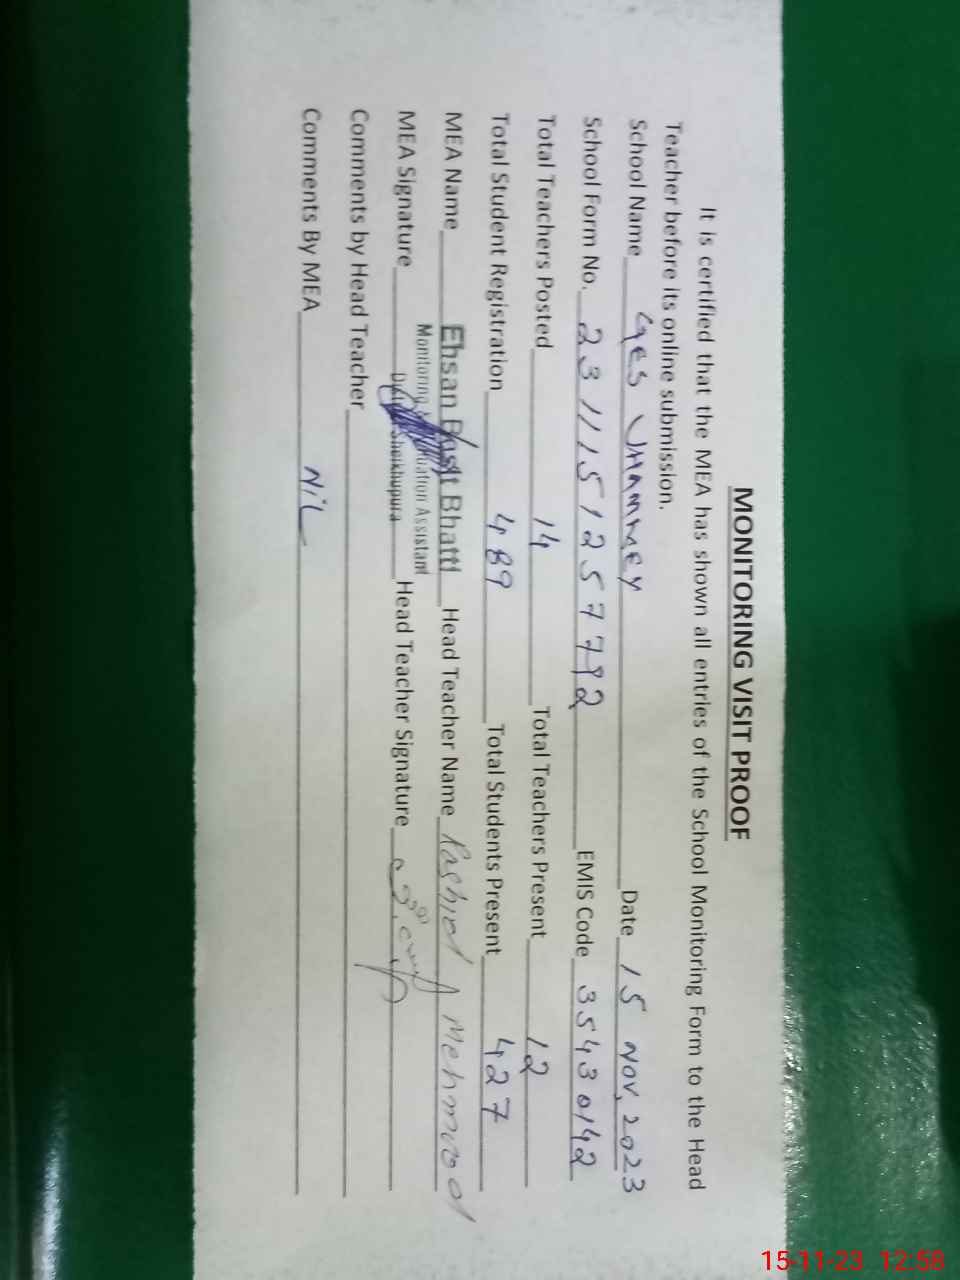 MONITORING VISIT PROOF
It is certified that the MEA has shown all entries of the School Monitoring Form to the Head
Teacher before its online submission.
School Name GES JHAMMEY Date 15 NOV, 2023
School Form No. 2311151257792 EMIS Code 35430142
Total Teachers Posted 14 Total Teachers Present 12
Total Student Registration 489 Total Students Present 427
MEA Name Ehsan Basit Bhatti Head Teacher Name Rashid Mehmood
Monitoring Assistant
MEA Signature Sheikhupura Head Teacher Signature
Comments by Head Teacher
Comments By MEA NiL
15-11-23 12:58